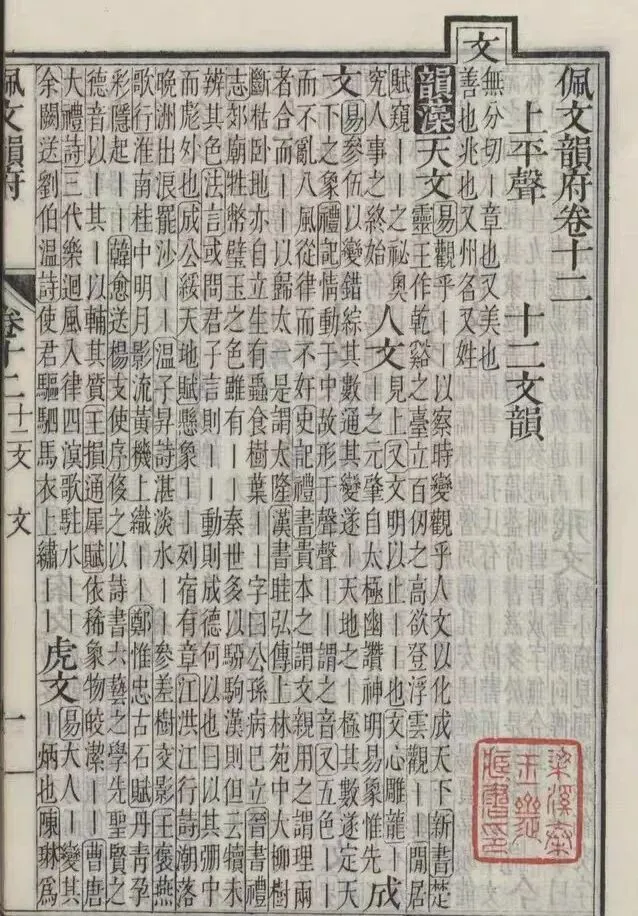 佩文韻府卷十二
上平聲 十二文韻
文
無分切丨章也又美也
善也兆也又州名又姓
韻藻 天文
易觀乎丨丨以察時變觀乎人文以化成天下新書楚
靈王作乾谿之臺立百仞之高欲登浮雲觀丨丨閒居
賦窺丨丨之祕奧
究人事之終始
人文
見上又文明以止丨丨也文心雕龍丨
丨之元肇自太極幽讚神明易象惟先
成
文
易參伍以變錯綜其數通其變遂丨天地之丨極其數遂定天
下之象禮記情動于中故形于聲聲丨丨謂之音又五色丨丨
而不亂八風從律而不奸史記禮書貴本之謂文親用之謂理兩
者合而丨丨以歸太一是謂太隆漢書眭弘傳上林苑中大柳樹
斷枯卧地亦自立生有蟲食樹葉丨丨字曰公孫病已立晉書禮
志郊廟牲幣璧玉之色雖有丨丨秦世多以騂駒漢則但云犢未
辨其色法言或問君子言則丨丨動則成德何以也曰以其弸中
而彪外也成公綏天地賦懸象丨丨列宿有章江洪江行詩潮落
晚洲出浪罷沙丨丨溫子昇詩湛淡水丨丨參差樹交影王褒燕
歌行淮南桂中明月影流黃機上織丨丨鄭惟忠古石賦丹青孕
彩隱起丨丨韓愈送楊支使序俊之以詩書六藝之學先聖賢之
德音以丨其丨以輔其質王損通犀賦依稀象物皎潔丨丨曹唐
大禮詩三代樂迴風入律四溟歌駐水丨丨
余闕送劉伯溫詩使君驅駟馬衣上繡丨丨
虎文
易大人丨變其
丨炳也陳琳爲
佩文韻府 卷十二 十二文 文 一